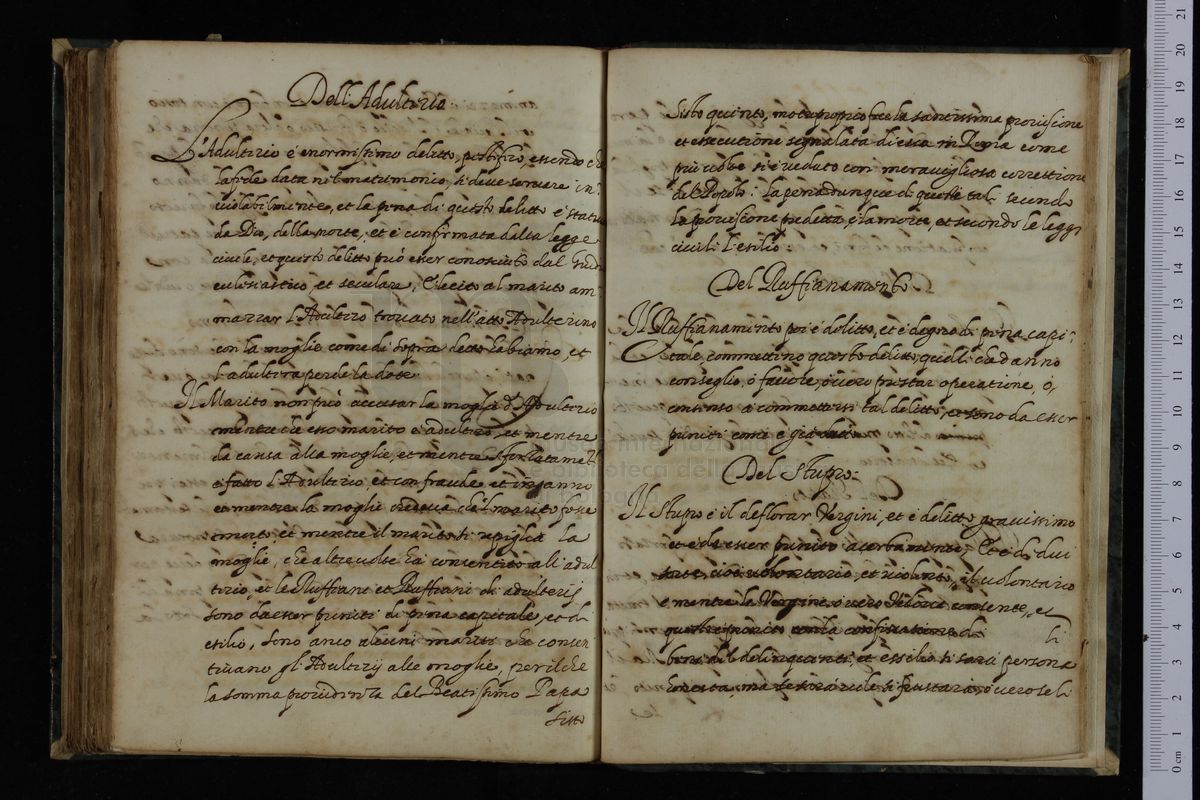 Dell'Adulterio
L'Adulterio é enormissimo delitto, essendo
la fede data nel matrimonio, si deve servare in:
violabilmente, et la pena di questo delitto é statu
da Dio, della morte, et é confirmata dalla legge
civile, et questo delitto può esser conosciuto dal Giud
eclesiastico, et seculare, é lecito al marito am
mazzar l'Adultero trovato nell'atto Adulterino
con la moglie come di sopra detto habiamo, et
l'adultera perde la dote
Il Marito non può accusar la moglie d'Adulterio
mentre che esso marito é adultero, et mentre
da causa alla moglie, et mentre sforzatamente
é fatto l'Adulterio, et con fraude et inganno
et mentre la moglie credeva che'l marito fosse
morto, et mentre il marito si repiglia la
moglie, che altre volte ha consentito all'adul
terio, et le Ruffiane et Ruffiani di adulterij
sono da esser puniti di pena capitale, et di
esilio, sono anco alcuni mariti che consen
tivano gl'Adulterij alle moglie, perilche
la somma providenza del Beatissimo Papa
Sisto
Sisto quinto, motu proprio fece la santissima provisione
et essecutione segnalata di essa in Roma come
più volte si é veduto con meravigliosa correttione
del Popolo: la pena dunque di questi tali secondo
la provisione predetta, é la morte, et secondo le leggi
civili l'esilio:
Del Ruffianamento
Il Ruffianamento poi é delitto, et é degno di pena capi:
tale, commettino questo delitto, quelli ch'danno
conseglio, ò favore, ò vero prestar operatione ò,
consenso a commettersi tal delitto, et sono da esser
puniti come é già detto
Del Stupro:
Il Stupro é il deflorar Vergini, et é delitto gravissimo
et é da esser punito acerbamente, et é di dui
sorte, cioé volontario, et violento, il volontario
é mentre la Vergine, ò vero Vedova consente, et
questo é punito con la confiscatione di li
beni del delinquente, et essilio si sarà persona
honesta, ma se sarà vile si frustara, ò vero se li